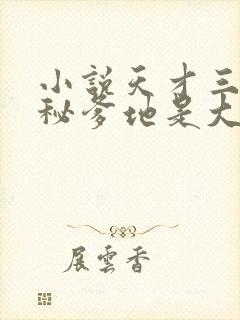 小說天才三
秘爹地是大
展雲香